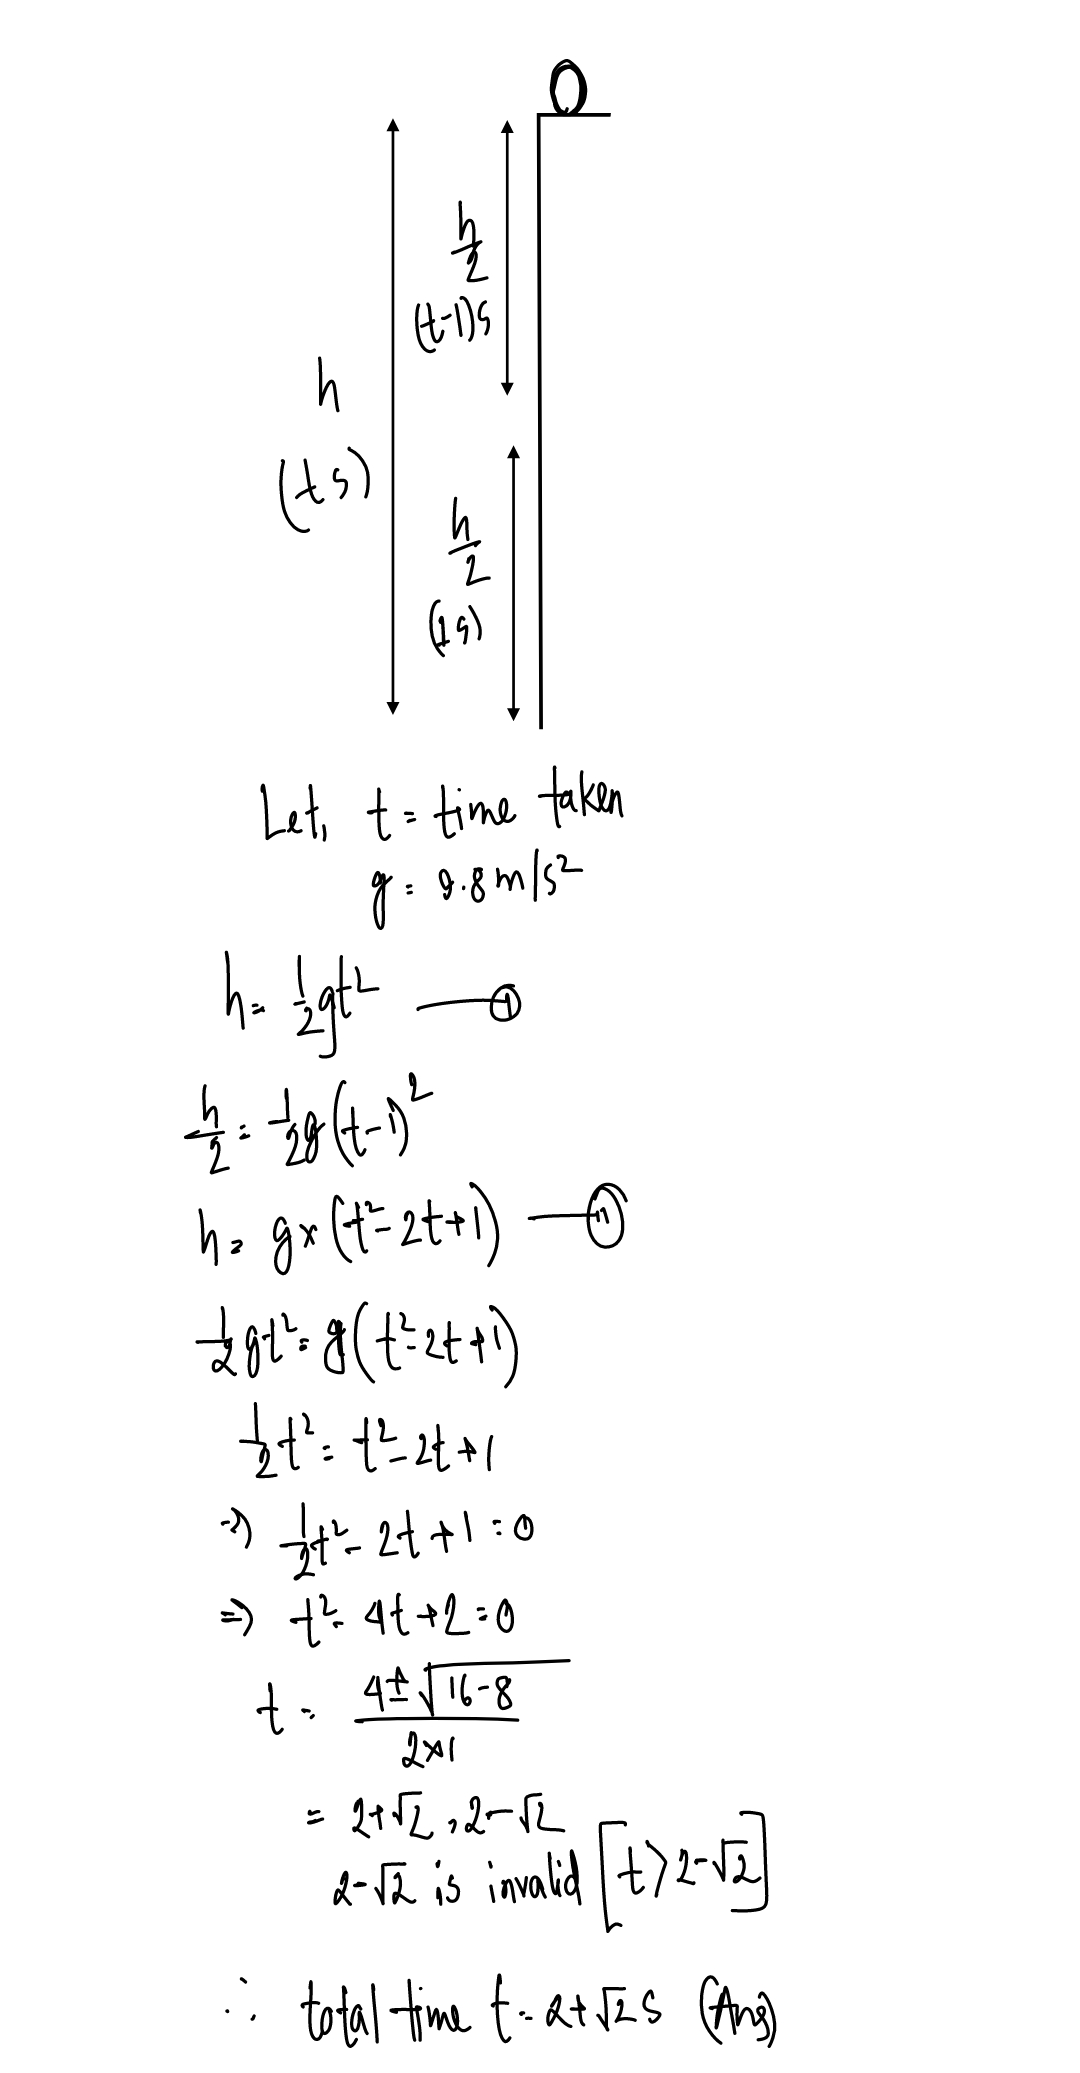 h/2
(t-1)s
h
(ts)
h/2
(1s)
Let, t = time taken
g = 9.8 m/s²
h = 1/2 gt² —①
h/2 = 1/2 g(t-1)²
h = g×(t²-2t+1) —⑪
1/2 gt² = g(t²-2t+1)
1/2 t² = t²-2t+1
⇒ 1/2 t² - 2t + 1 = 0
⇒ t² - 4t + 2 = 0
t = (4±√16-8)/(2×1)
= 2+√2, 2-√2
2-√2 is invalid [t > 2-√2]
∴ total time t = 2+√2 s (Ans)